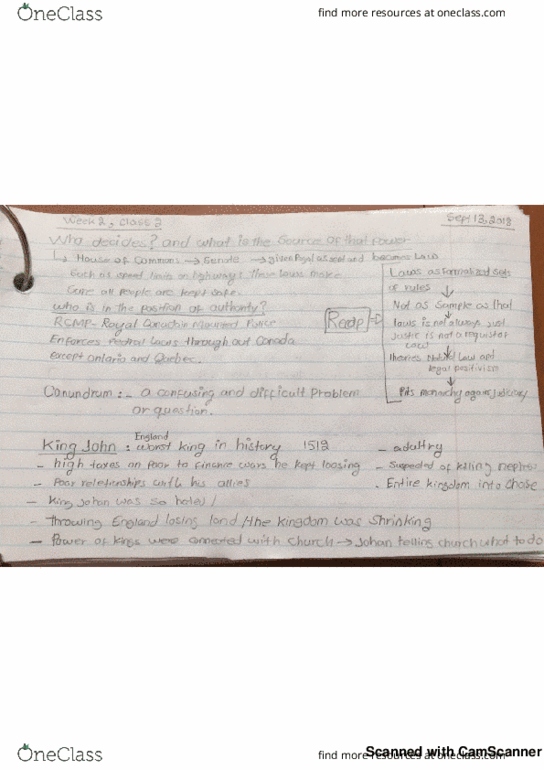 OneClass
find more resources at oneclass.com
Week 2, class 2
Sept 13, 2018
Who decides? and what is the source of that power
↳ House of Commons → Senate → given Royal assent and becomes Laws
Such as speed limis on highways these laws make
Sure all people are kept safe.
Who is in the position of authority?
RCMP - Royal Canadian Mounted Police
Enforces Fedral laws through out Canada
except Ontario and Quebec.
Recap
Laws as formalized sets
of rules
Not as Sample as that
laws is not always just
Justic is not a requist of
Law
theories Natural Law and
legal positivism
Pits monarchy against judiciary
Conundrum :- a confusing and difficult problem
or question.
England
King John : worst king in history 1512
- adultry
- high taxes on poor to finance wars he kept loosing
- Suspected of killing nephew
- Poor relationships with his allies
. Entire kingdom into chose
- King Johan was so hated /
- throwing England losing land /the kingdom was shrinking
- Power of kings were connected with church → Johan telling church what to do
OneClass
find more resources at oneclass.com
Scanned with CamScanner